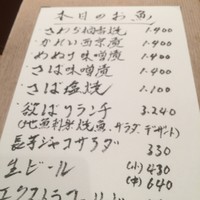 本日のお魚
さわら柚香焼 1.900
かれい西京漬 1.900
めぬけ味噌漬 1.900
さば味噌煮 1.400
さば塩焼 1.100
欲ばりランチ 3.240
(地魚刺身焼魚、サラダ、デザート)
長芋ジャコサラダ 330
生ビール (小)430
(中)640